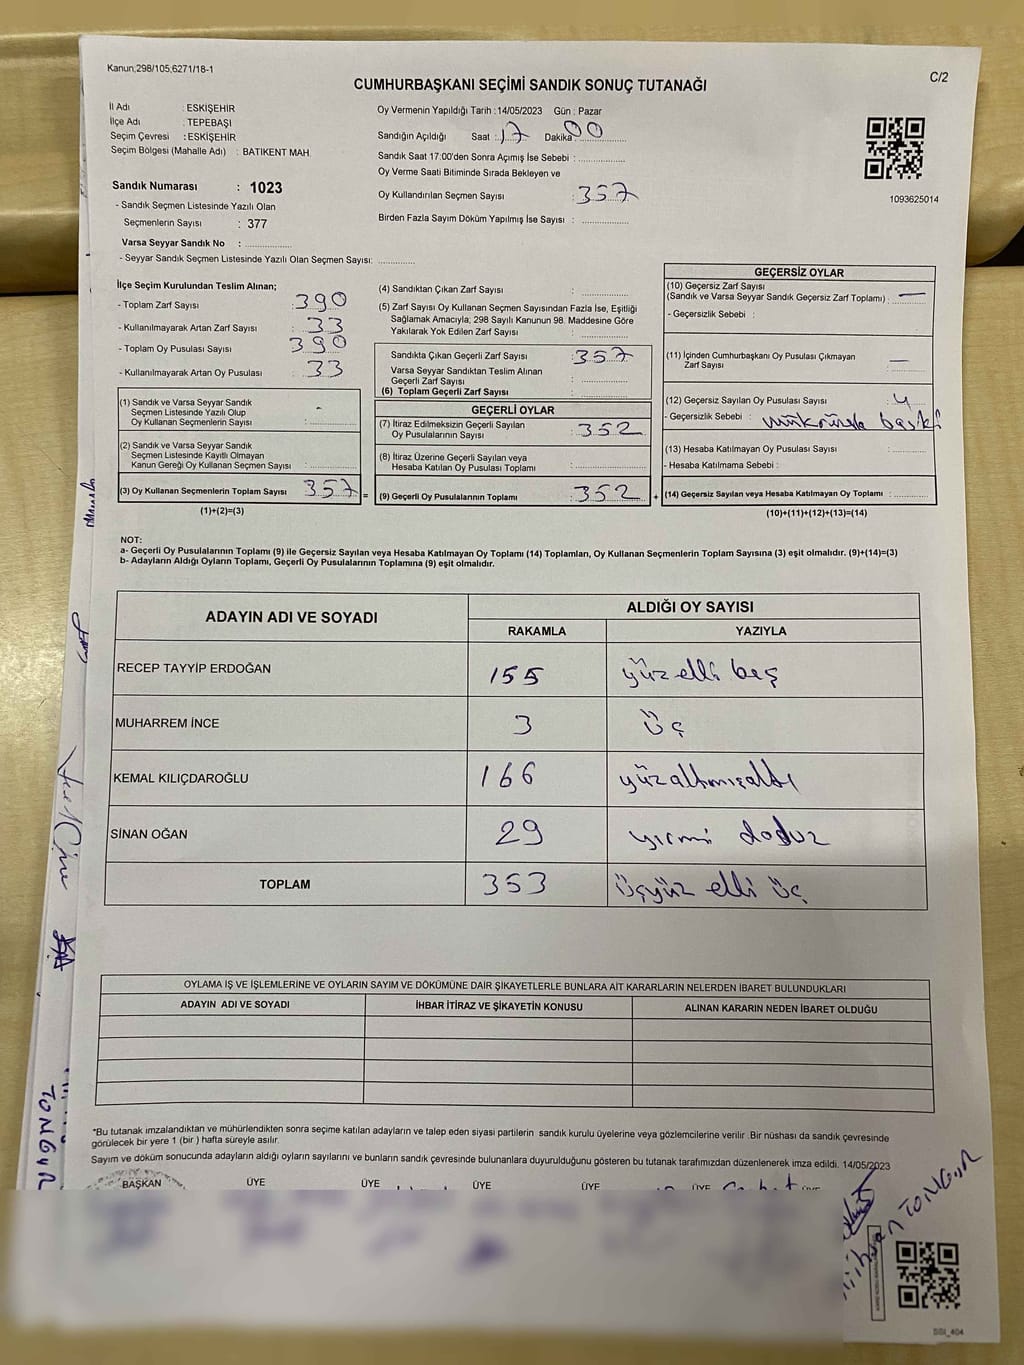 Kanun,298/105;6271/18-1
C/2
CUMHURBAŞKANI SEÇİMİ SANDIK SONUÇ TUTANAĞI
İl Adı : ESKİŞEHİR
İlçe Adı : TEPEBAŞI
Seçim Çevresi : ESKİŞEHİR
Seçim Bölgesi (Mahalle Adı) : BATIKENT MAH.
Sandık Numarası : 1023
- Sandık Seçmen Listesinde Yazılı Olan
Seçmenlerin Sayısı : 377
Varsa Seyyar Sandık No :
- Seyyar Sandık Seçmen Listesinde Yazılı Olan Seçmen Sayısı:
Oy Vermenin Yapıldığı Tarih : 14/05/2023 Gün : Pazar
Sandığın Açıldığı Saat : 17 Dakika : 00
Sandık Saat 17:00'den Sonra Açımış İse Sebebi :
Oy Verme Saati Bitiminde Sırada Bekleyen ve
Oy Kullandırılan Seçmen Sayısı : 357
Birden Fazla Sayım Döküm Yapılmış İse Sayısı :
1093625014
İlçe Seçim Kurulundan Teslim Alınan;
- Toplam Zarf Sayısı : 390
- Kullanılmayarak Artan Zarf Sayısı : 33
- Toplam Oy Pusulası Sayısı : 390
- Kullanılmayarak Artan Oy Pusulası : 33
(1) Sandık ve Varsa Seyyar Sandık
Seçmen Listesinde Yazılı Olup
Oy Kullanan Seçmenlerin Sayısı : -
(2) Sandık ve Varsa Seyyar Sandık
Seçmen Listesinde Kayıtlı Olmayan
Kanun Gereği Oy Kullanan Seçmen Sayısı :
(3) Oy Kullanan Seçmenlerin Toplam Sayısı 357 =
(1)+(2)=(3)
(4) Sandıktan Çıkan Zarf Sayısı :
(5) Zarf Sayısı Oy Kullanan Seçmen Sayısından Fazla İse, Eşitliği
Sağlamak Amacıyla; 298 Sayılı Kanunun 98. Maddesine Göre
Yakılarak Yok Edilen Zarf Sayısı :
Sandıkta Çıkan Geçerli Zarf Sayısı : 357
Varsa Seyyar Sandıktan Teslim Alınan
Geçerli Zarf Sayısı :
(6) Toplam Geçerli Zarf Sayısı :
GEÇERLİ OYLAR
(7) İtiraz Edilmeksizin Geçerli Sayılan
Oy Pusulalarının Sayısı : 352
(8) İtiraz Üzerine Geçerli Sayılan veya
Hesaba Katılan Oy Pusulası Toplamı :
(9) Geçerli Oy Pusulalarının Toplamı : 352 +
GEÇERSİZ OYLAR
(10) Geçersiz Zarf Sayısı
(Sandık ve Varsa Seyyar Sandık Geçersiz Zarf Toplamı) : —
- Geçersizlik Sebebi :
(11) İçinden Cumhurbaşkanı Oy Pusulası Çıkmayan
Zarf Sayısı : —
(12) Geçersiz Sayılan Oy Pusulası Sayısı : 4
- Geçersizlik Sebebi :
(13) Hesaba Katılmayan Oy Pusulası Sayısı :
- Hesaba Katılmama Sebebi :
(14) Geçersiz Sayılan veya Hesaba Katılmayan Oy Toplamı :
(10)+(11)+(12)+(13)=(14)
NOT:
a- Geçerli Oy Pusulalarının Toplamı (9) ile Geçersiz Sayılan veya Hesaba Katılmayan Oy Toplamı (14) Toplamları, Oy Kullanan Seçmenlerin Toplam Sayısına (3) eşit olmalıdır. (9)+(14)=(3)
b- Adayların Aldığı Oyların Toplamı, Geçerli Oy Pusulalarının Toplamına (9) eşit olmalıdır.
ADAYIN ADI VE SOYADI
ALDIĞI OY SAYISI
RAKAMLA YAZIYLA
RECEP TAYYİP ERDOĞAN 155 yüz elli beş
MUHARREM İNCE 3 üç
KEMAL KILIÇDAROĞLU 166 yüzaltmışaltı
SİNAN OĞAN 29 yirmi dokuz
TOPLAM 353 üçyüz elli üç
OYLAMA İŞ VE İŞLEMLERİNE VE OYLARIN SAYIM VE DÖKÜMÜNE DAİR ŞİKAYETLERLE BUNLARA AİT KARARLARIN NELERDEN İBARET BULUNDUKLARI
ADAYIN ADI VE SOYADI İHBAR İTİRAZ VE ŞİKAYETİN KONUSU ALINAN KARARIN NEDEN İBARET OLDUĞU
*Bu tutanak imzalandıktan ve mühürlendikten sonra seçime katılan adayların ve talep eden siyasi partilerin sandık kurulu üyelerine veya gözlemcilerine verilir. Bir nüshası da sandık çevresinde
görülecek bir yere 1 (bir ) hafta süreyle asılır.
Sayım ve döküm sonucunda adayların aldığı oyların sayılarını ve bunların sandık çevresinde bulunanlara duyurulduğunu gösteren bu tutanak tarafımızdan düzenlenerek imza edildi. 14/05/2023
BAŞKAN ÜYE ÜYE ÜYE ÜYE ÜYE ÜYE
TONGUR
TONGUR
SSI_404